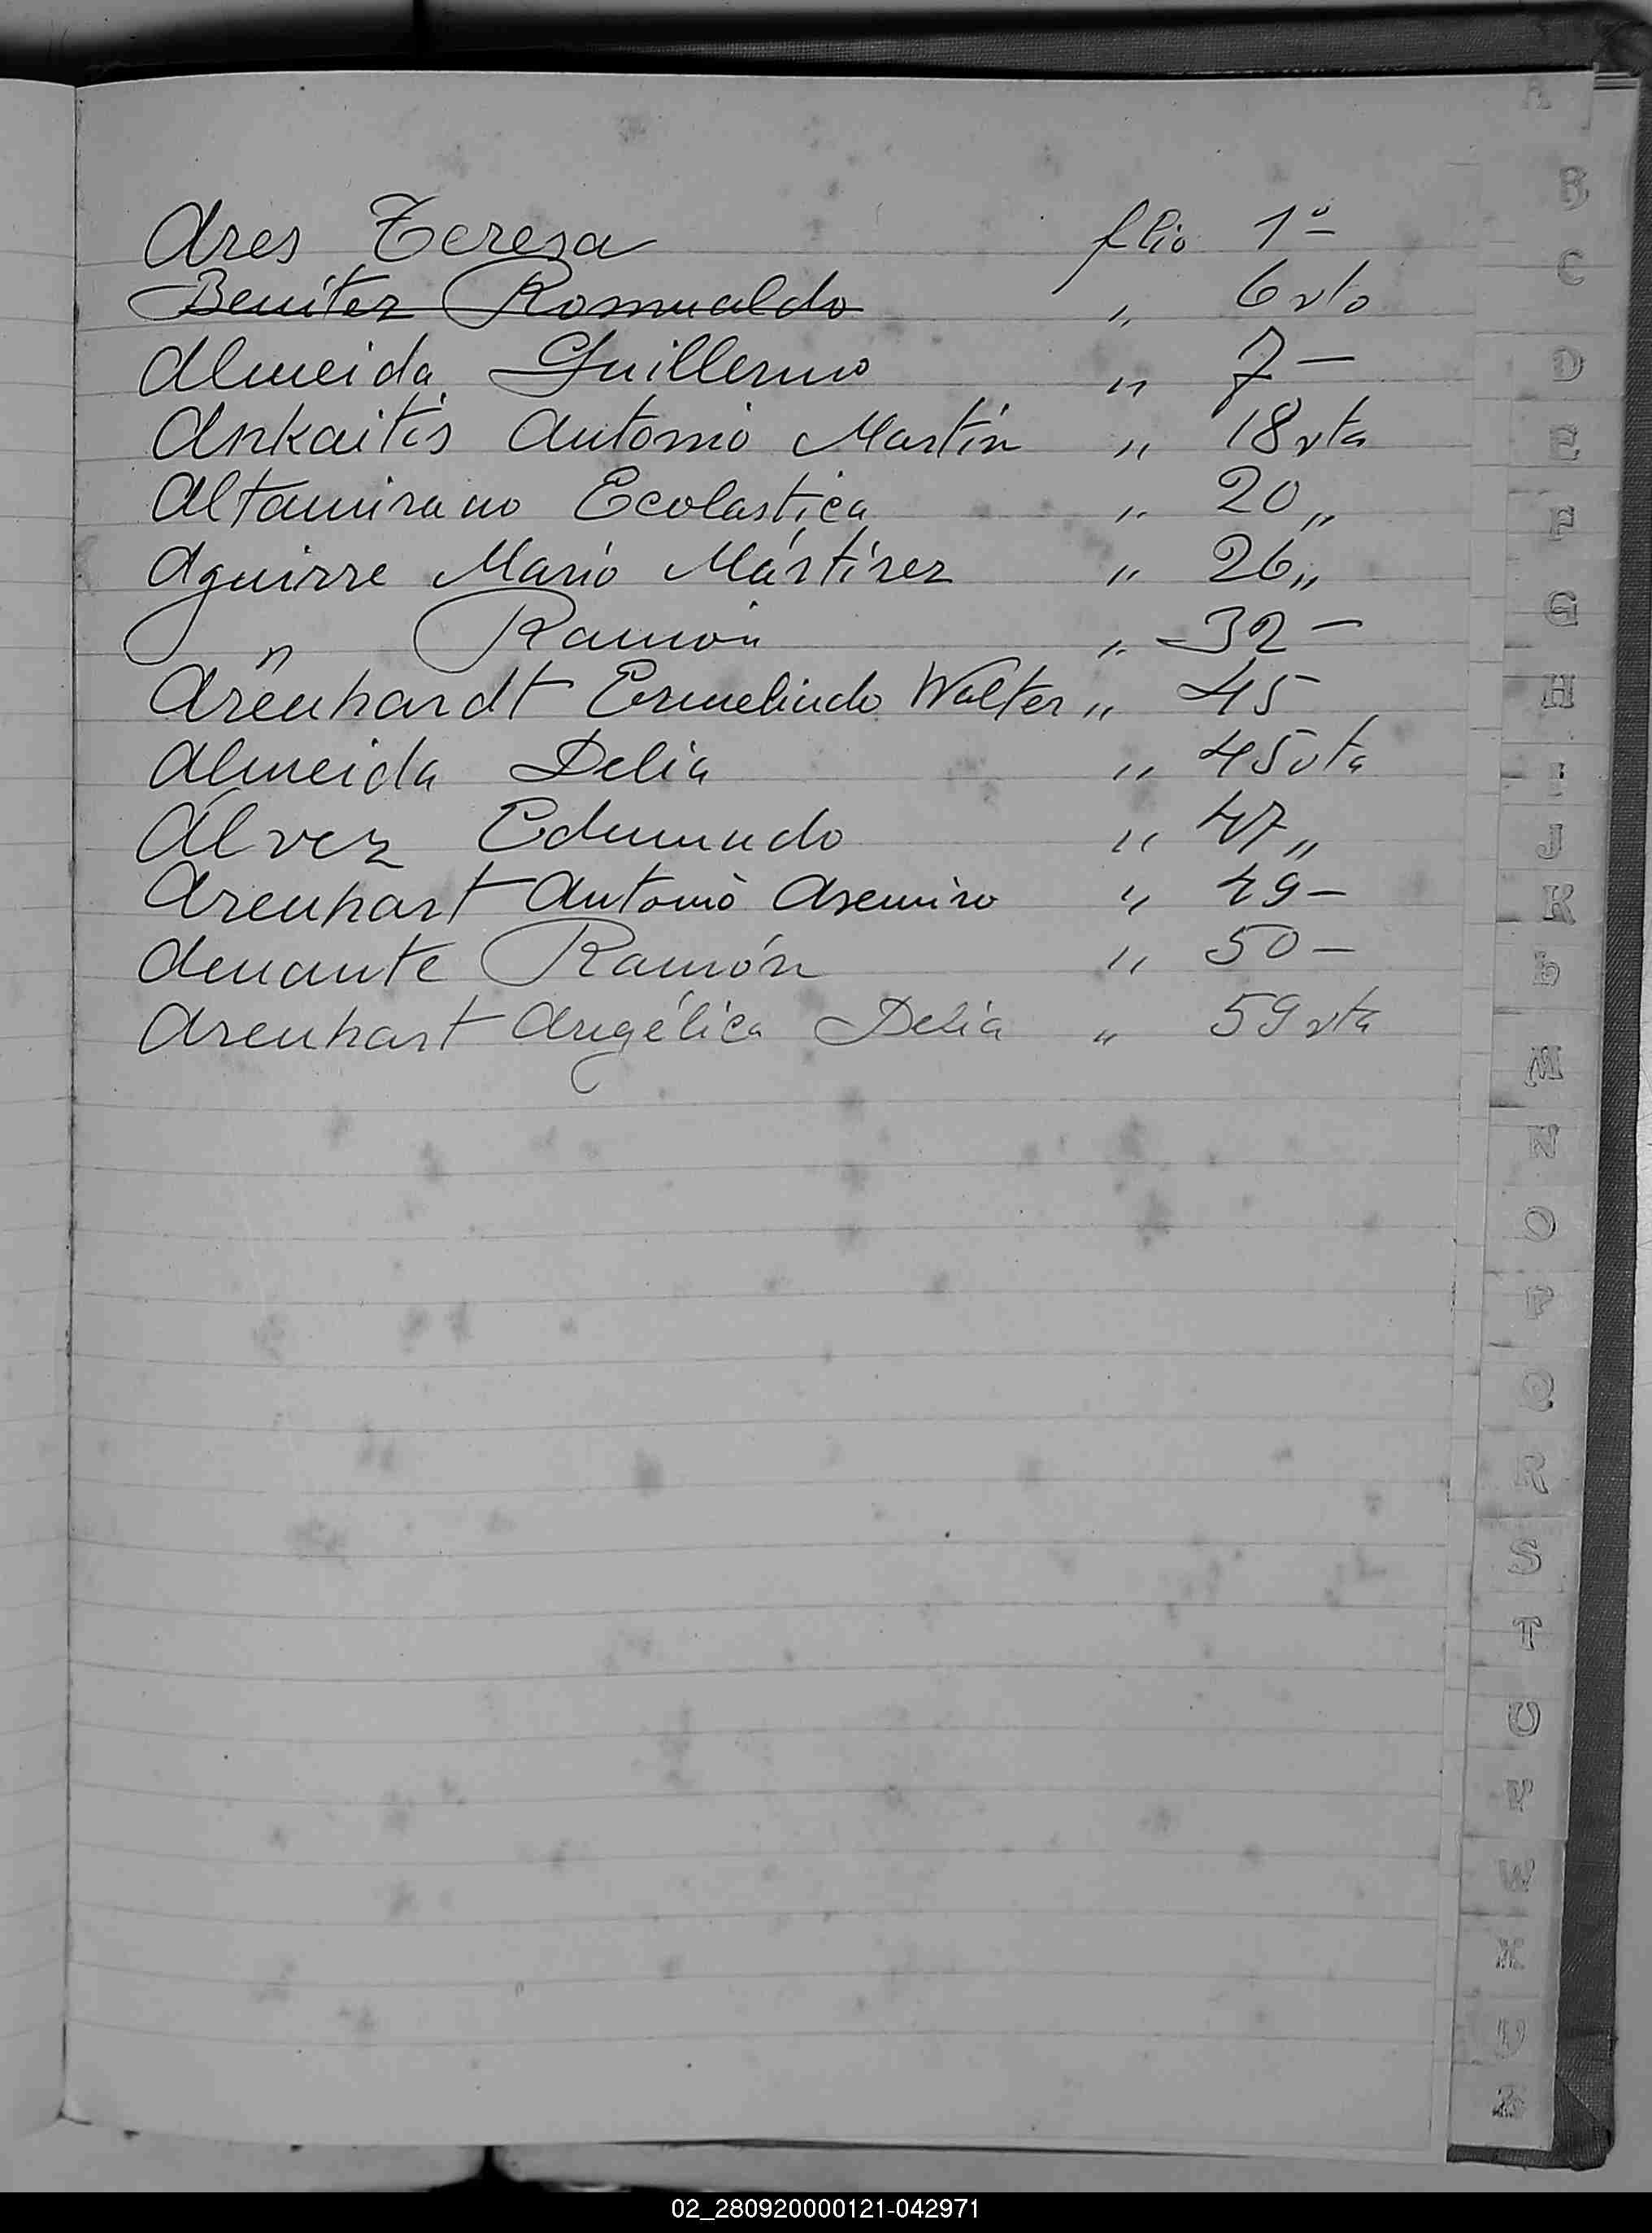 Ares Teresa flio 1º-
Benitez Romualdo " 6 vto
Almeida Guillermo " 7 -
Ankaitis Antonio Martín " 18 vta
Altamirano Ecolastica " 20 "
Aguirre Mario Mártirez " 26 "
" Ramón " 32 -
Arenhardt Ermelindo Walter " 45
Almeida Delia " 45 vta
Álvez Edmundo " 47 "
Arenhart Antonio Asemiro " 49 -
Amante Ramón " 50 -
Arenhart Angélica Delia " 59 vta
A
B
C
D
E
F
G
H
I
J
K
L
M
N
O
P
Q
R
S
T
U
V
W
X
Z
02_280920000121-042971